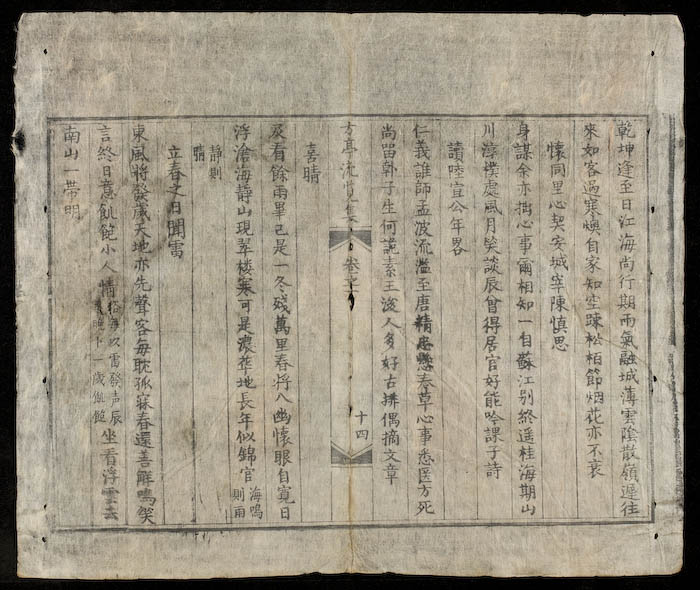 乾坤逢至日江海尚行期雨氣融城薄雲陰散嶺遲往
來如客過寒燠自家知空疎松栢節烟花亦不衰
懷同里心契安城宰陳慎思
身謀余亦拙心事爾相知一自蘇江别終遥桂海期山
川淳樸處風月笑談辰曾得居官好能吟課子詩
讀陸宣公年畧
仁義誰師孟波流濫至唐精忠懸奏草心事悉医方死
尚留郭子生何詭素王後人多好古排偶摘文章
方亭流覽集 卷之 十四
喜晴
及看餘雨畢已是一冬殘萬里春將入幽懷眼自寬日
浮滄海静山現翠楼寒可是濃華地長年似錦官 海鳴
則雨
静則
晴
立春之日聞雷
東風將發歲天地亦先聲客每耽孤寐春還善解鳴笑
言終日意飢飽小人情 俗每以雷發声辰
晚卜一歲飢飽 坐看浮雲去
南山一帶明